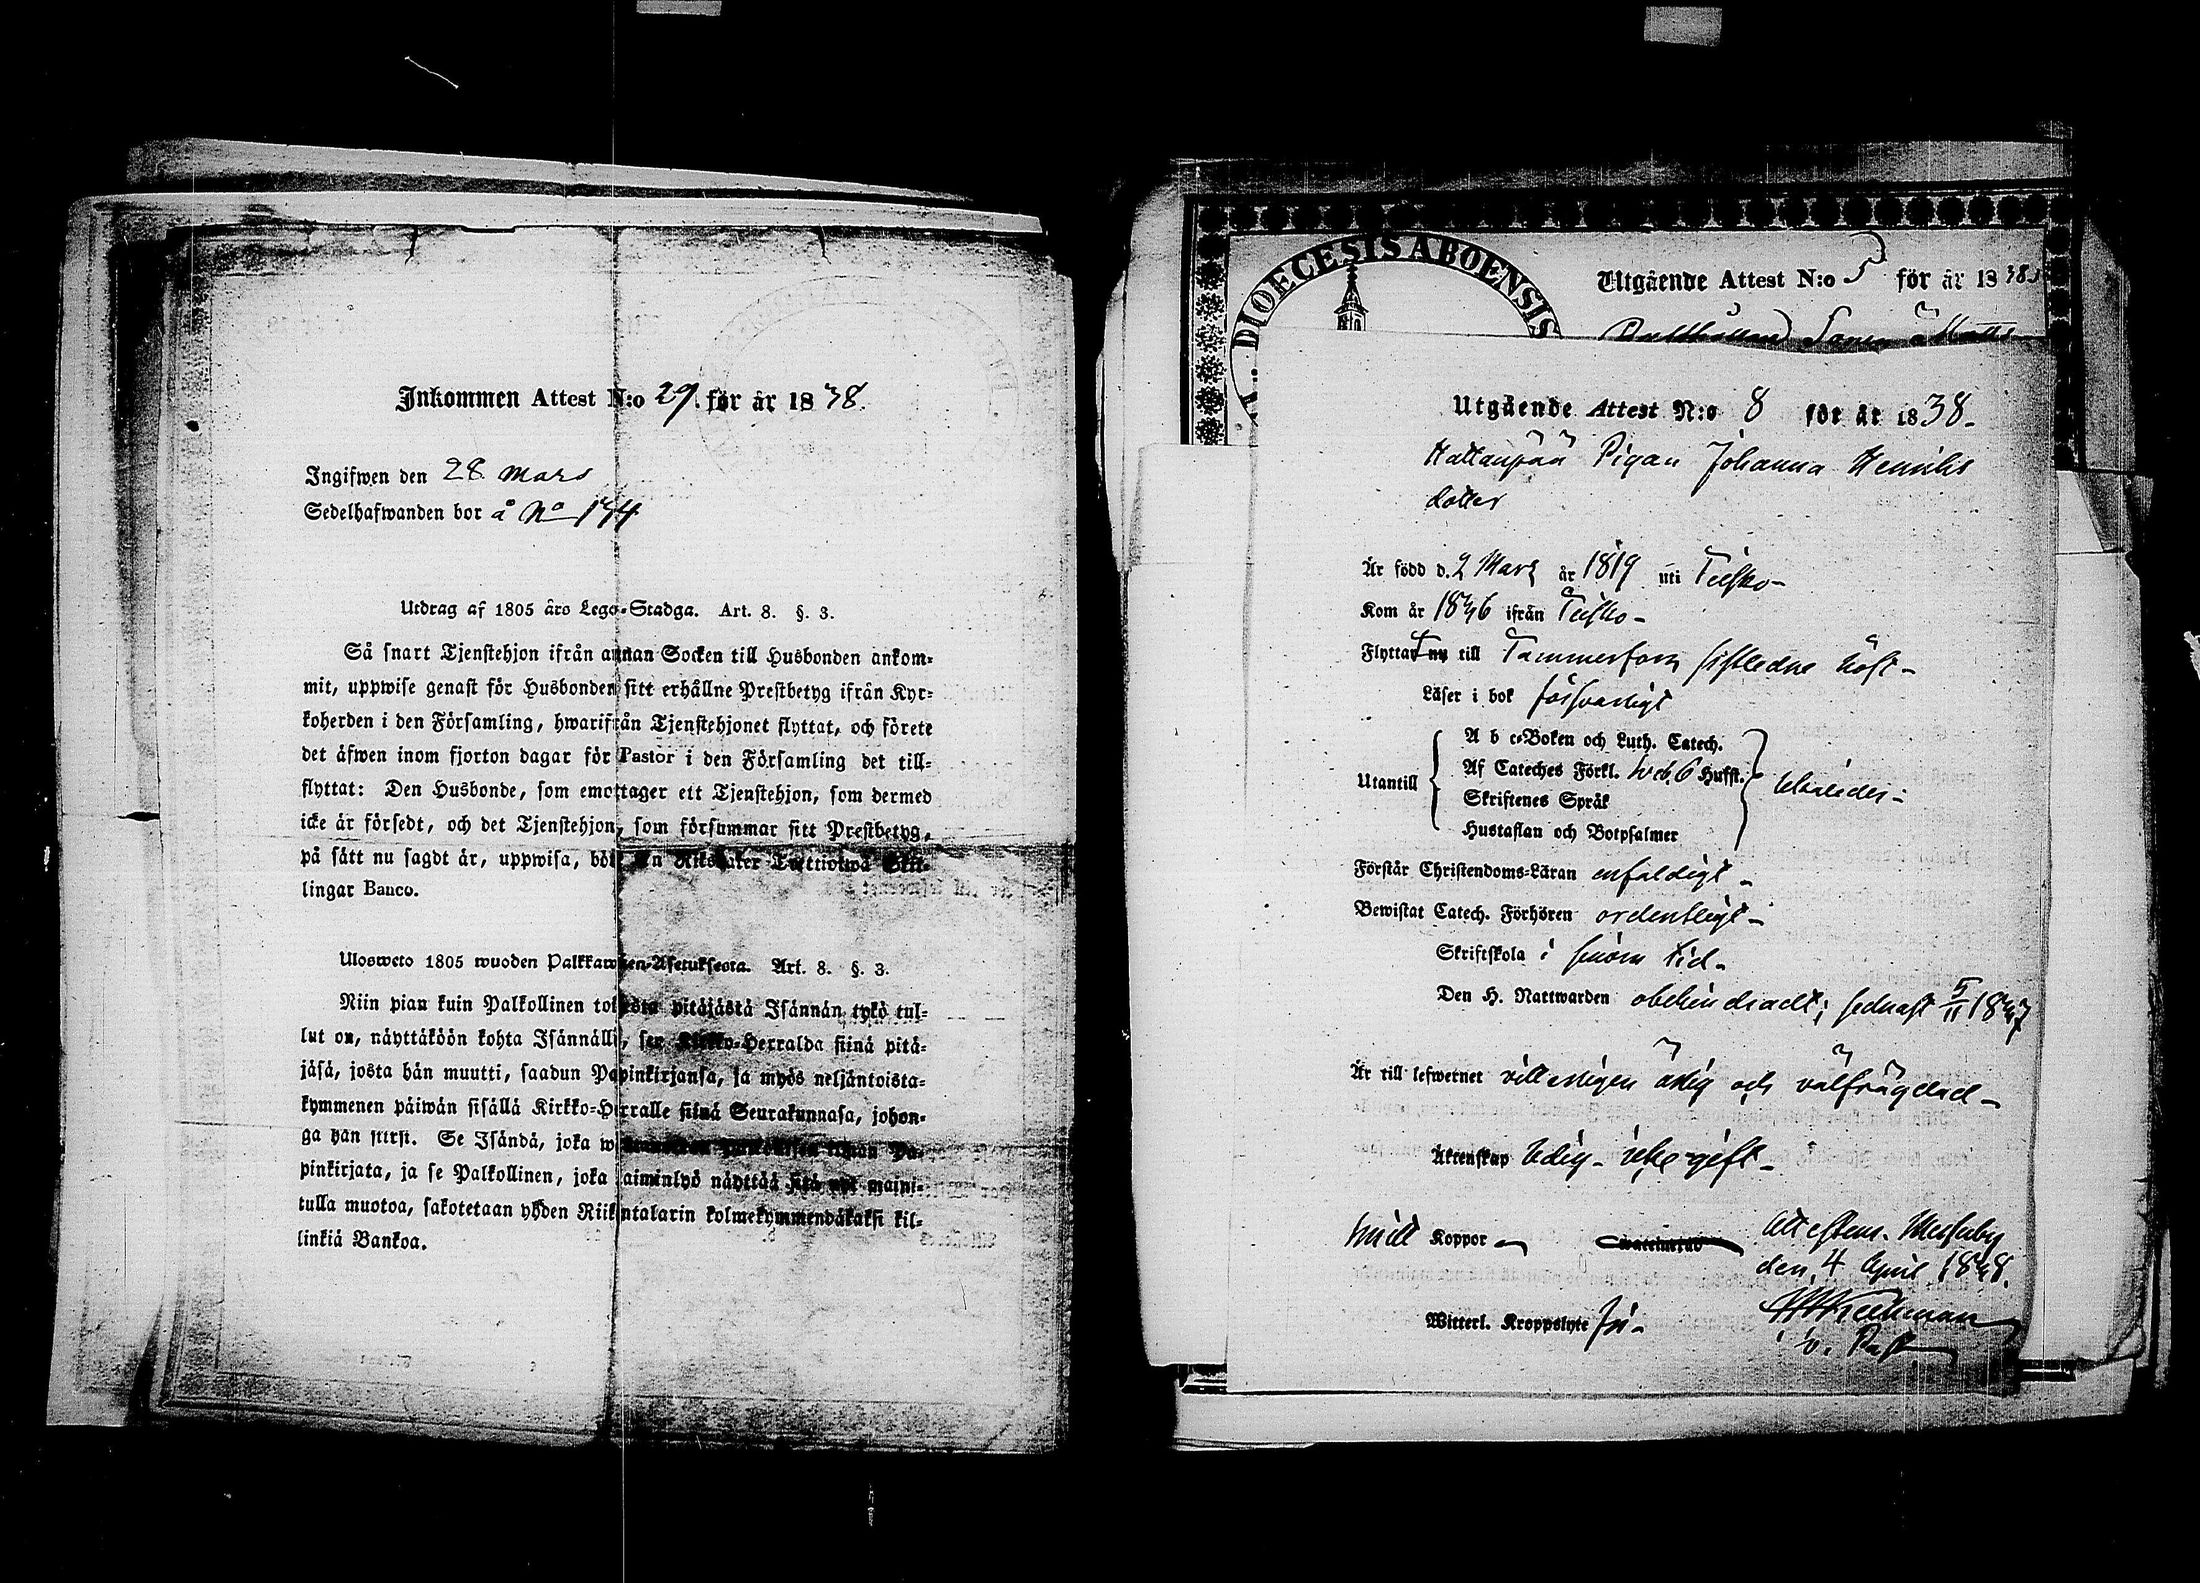 Inkommen Attest N:o 29. för år 1838.
Ingifwen den 28 mars
Sedelhafwanden bor å No 144
Utdrag af 1805 års Lego-Stadga. Art. 8. §. 3.
Så snart Tjenstehjon ifrån annan Socken till Husbonden ankom-
mit, uppwise genast för Husbonden sitt erhållne Prestbetyg ifrån Kyr-
koherden i den Församling, hwarifrån Tjenstehjonet flyttat, och förete
det äfwen inom fjorton dagar för Pastor i den Församling det till-
flyttat: Den Husbonde, som emottager ett Tjenstehjon, som dermed
icke är försedt, och det Tjenstehjon, som försummar sitt Prestbetyg,
på sätt nu sagdt är, uppwisa, böte en Riksdaler Trettiotwå Skil-
lingar Banco.
Ulosweto 1805 wuoden Palkkawäen-Asetuksesta. Art. 8. §. 3.
Niin pian kuin Palkollinen toisesta pitäjästä Isännän tykö tul-
lut on, näyttäköön kohta Isännälli, sen Kirkko-Herralda siinä pitä-
jäsä, josta hän muutti, saadun Papinkirjansa, ja myös neljäntoista-
kymmenen päiwän sisällä Kirkko-Herralle siinä Seurakunnasa, johon-
ga hän siirsi. Se Isändä, joka Pa-
pinkirjata, ja se Palkollinen, joka laiminlyö näyttää sitä nyt maini-
tulla muotoa, sakotetaan yhden Riikintalarin kolmekymmendäkaksi kil-
linkiä Bankoa.
DIOECESIS ABOENSIS
Utgående Attest N:o 5 för år 1838
Utgående Attest N:o 8 för år 1838.
Hattanpää Pigan Johanna Henriks
dotter
Är född d. 2 Mars år 1819 uti Teisko
Kom år 1836 ifrån Teisko
Flyttat nu till Tammerfors sistledne höst
Läser i bok försvarligt
A b c-Boken och Luth. Catech.
Utantill Af Cateches Förkl. 6 Hufst.
Skriftenes Språk
Hustaflan och Botpsalmer
Förstår Christendoms-Läran enfaldigt
Bewistat Catech. Förhören ordentligt
Skriftskola i sinom tid
Den H. Nattwarden obehindradt; sednast 5/11 1837
Är till lefwernet ärlig och välfrägdad
Äktenskap ledig icke gift
Koppor
Attesteras. Messuby
den 4 April 1838.
Witterl. Kroppslyte
v. Past